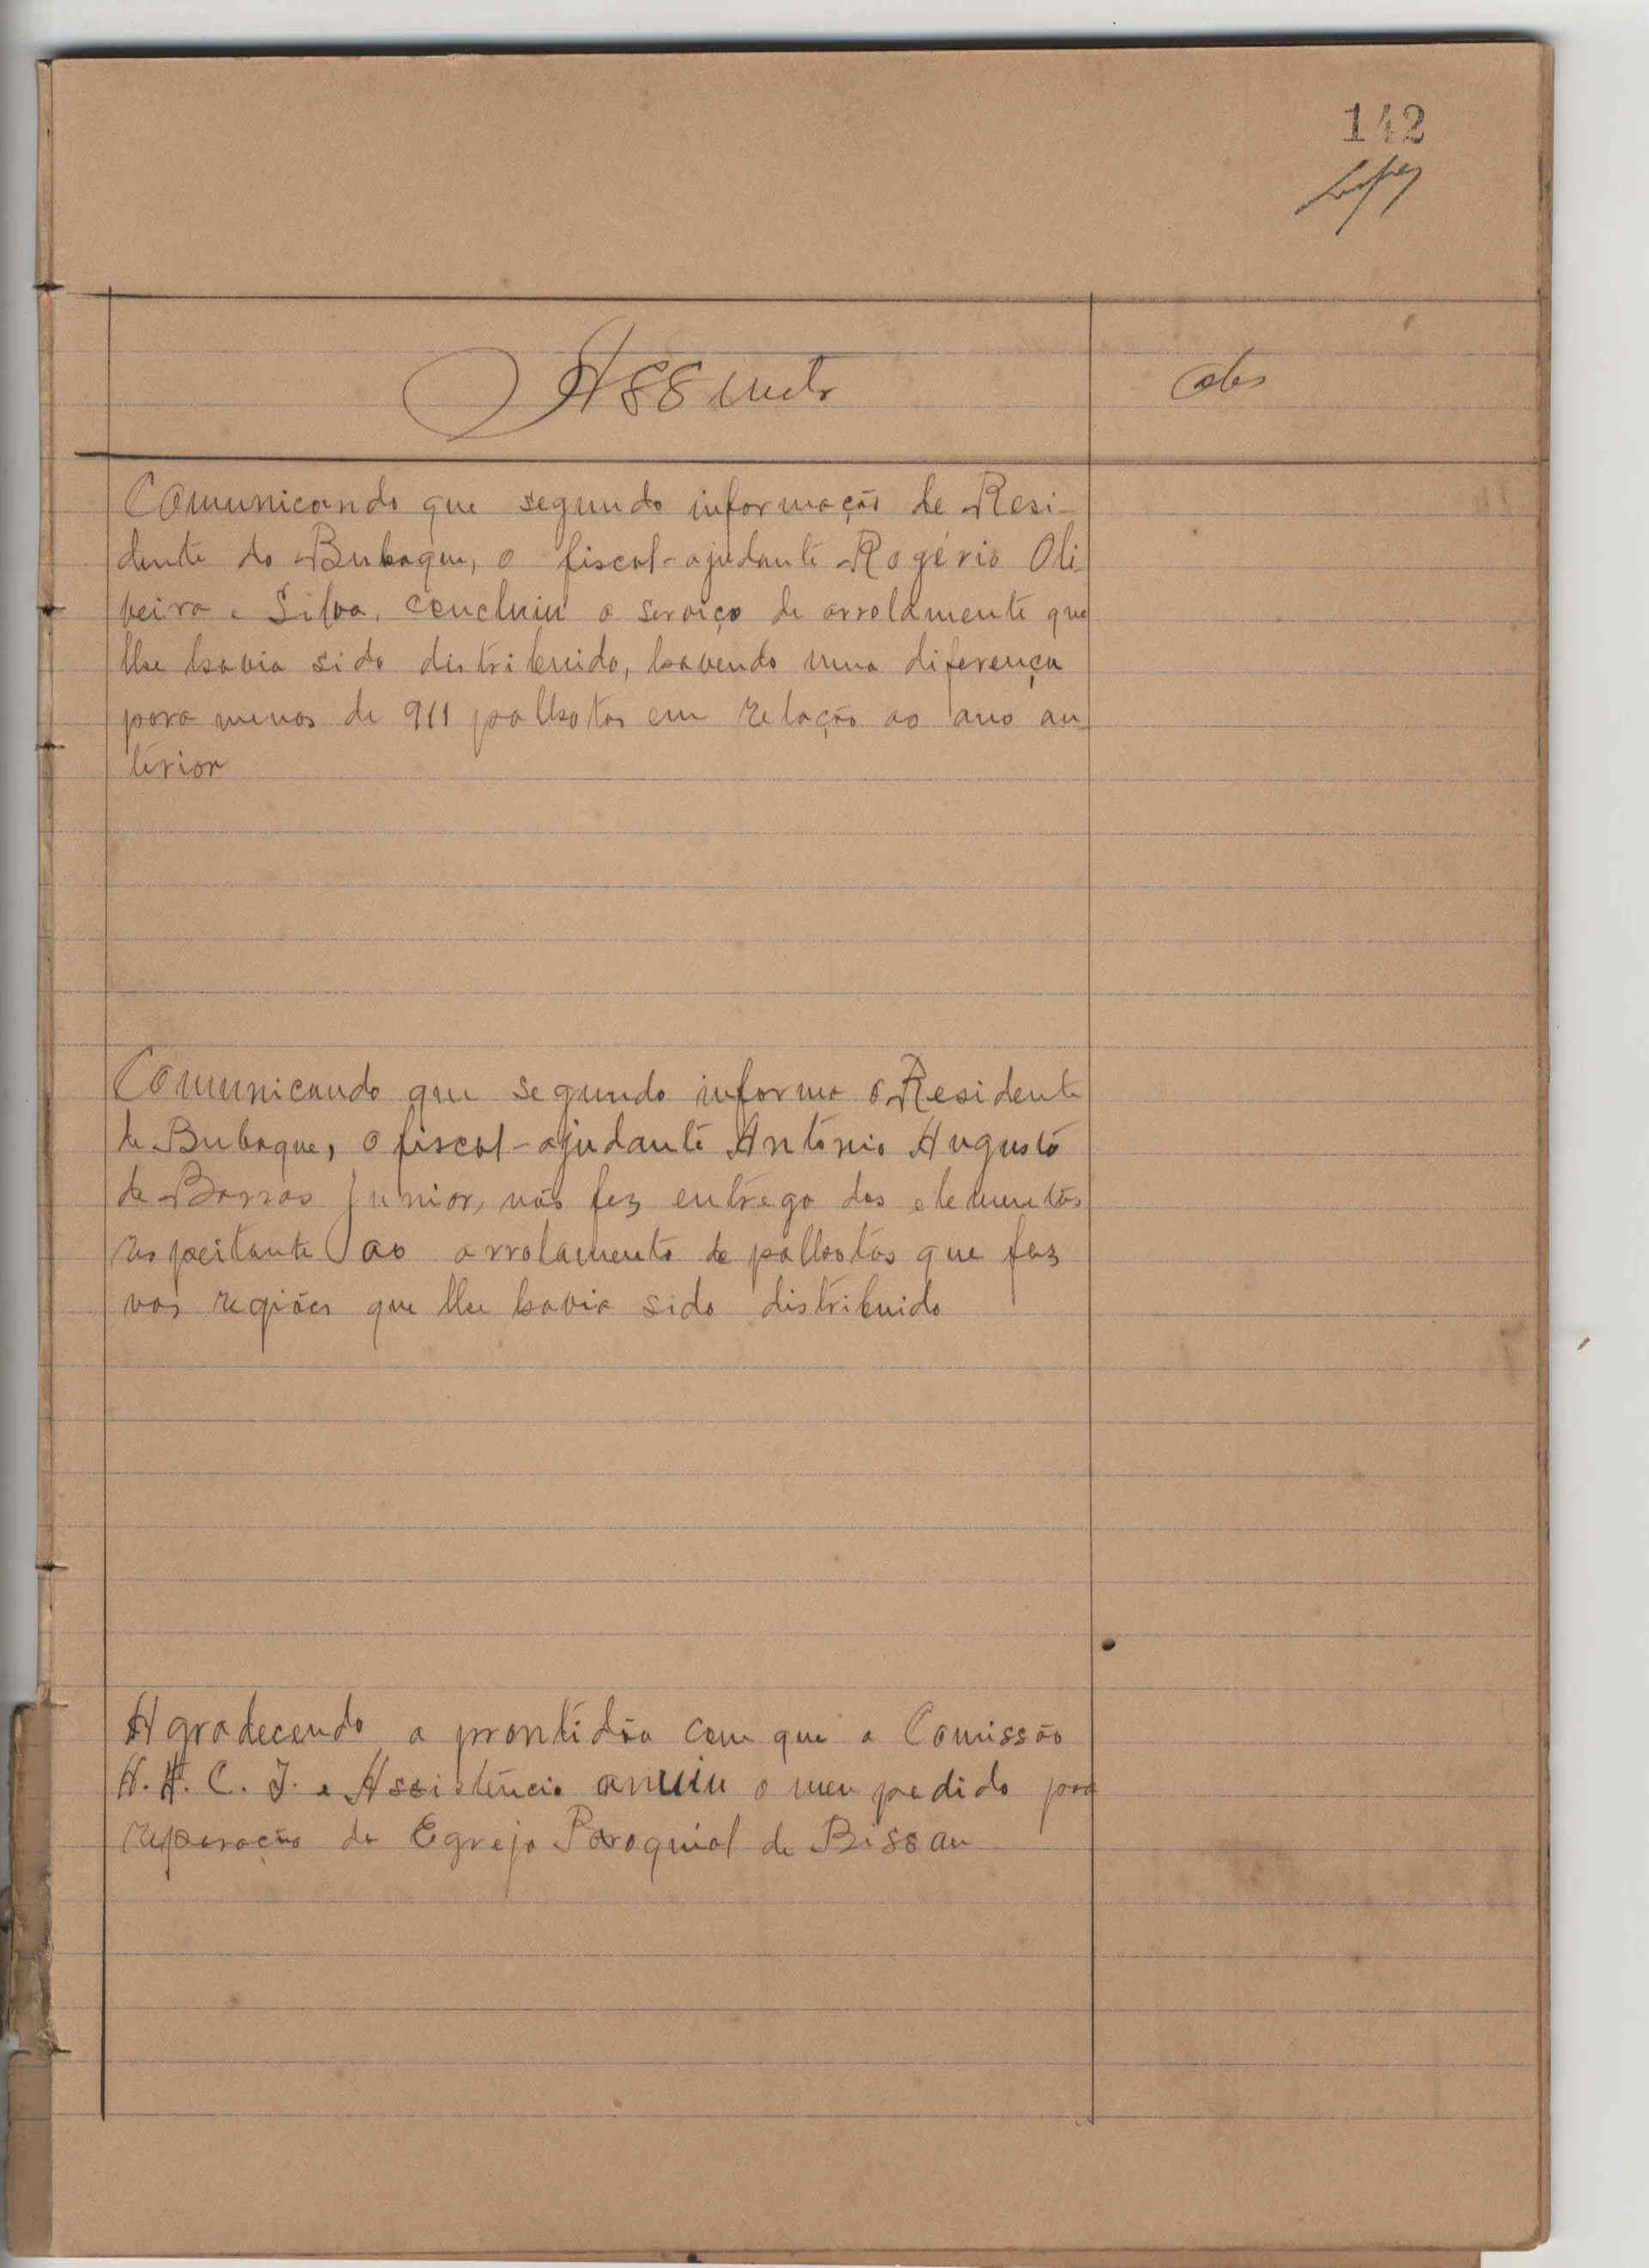 142
Lopes
Assunto
Obs
Comunicando que segundo informação de Resi-
dente de Bubaque, o fiscal-ajudante Rogério Oli
veira e Silva, concluiu o serviço de arrolamento que
lhe havia sido distribuido, havendo uma diferença
para menos de 911 palhotas em relação ao ano an-
terior
Comunicando que segundo informa o Residente
de Bubaque, o fiscal-ajudante António Augusto
de Barros Junior, nos fez entrega dos elementos
respeitante ao arrolamento de palhotas que fez
nas regiões que lhe havia sido distribuido
Agradecendo a prontidão com que a Comissão
A. H. C. I. e Assistência anuiu o meu pedido para
reparação da Egreja Paroquial de Bissau